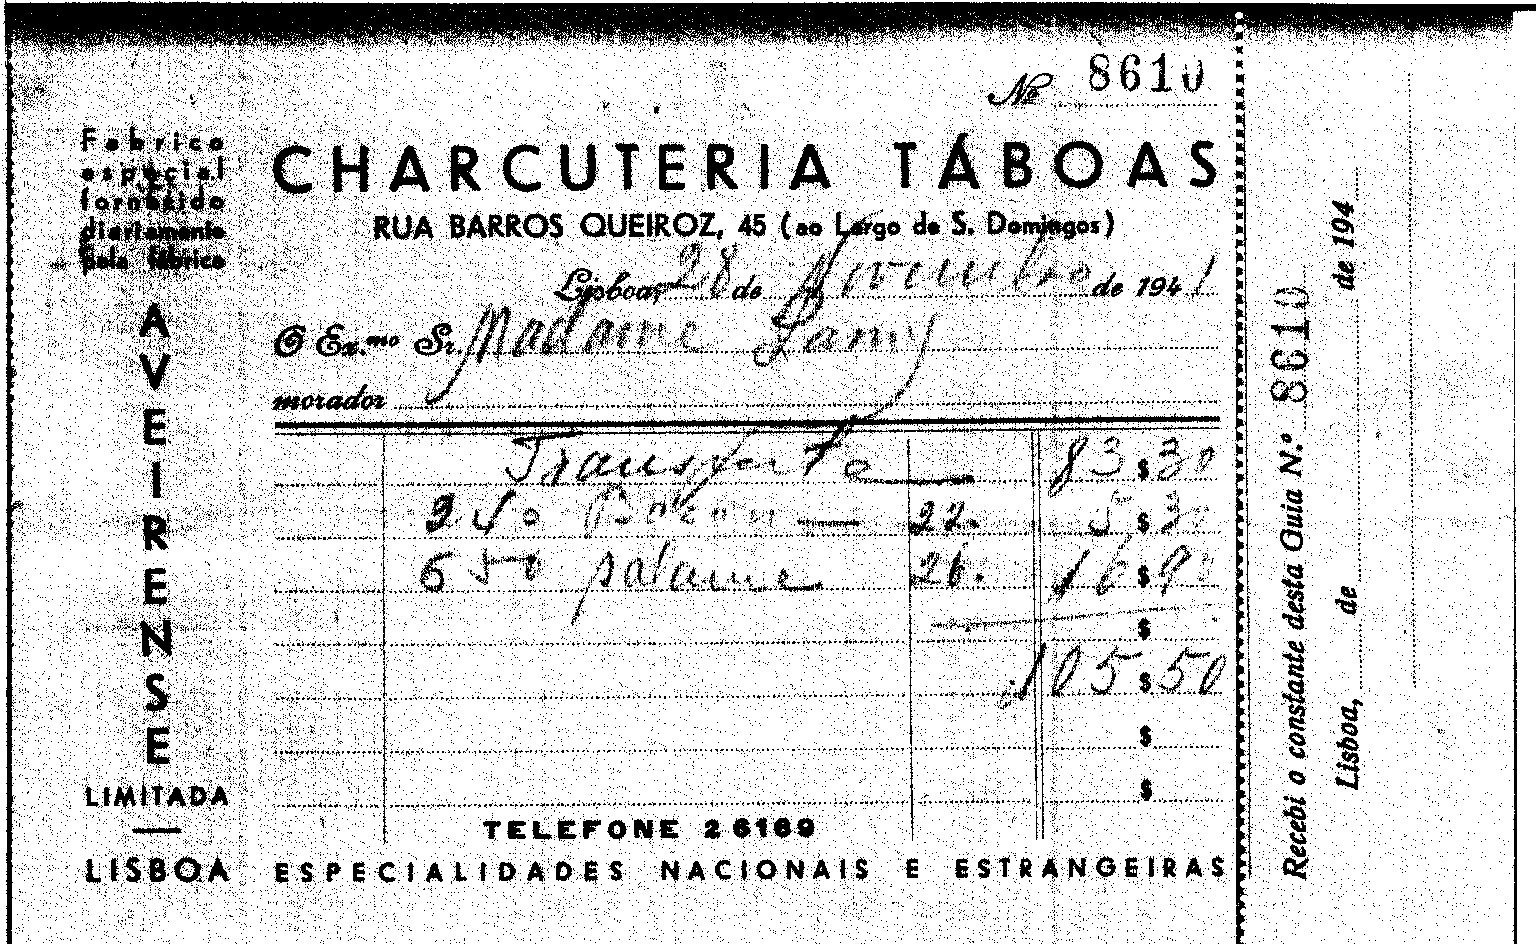 Nº 8610
Fabrico
especial
fornecido
diariamente
pela fábrica
AVEIRENSE
LIMITADA
LISBOA
CHARCUTERIA TÁBOAS
RUA BARROS QUEIROZ, 45 (ao Largo de S. Domingos)
Lisboa, 28 de Novembro de 1941
O Ex.mo Sr. Madame Lamy
morador
Transporte 83$30
240 Bacon — 22. 5$30
650 salame 26. 16$90
$
105$50
$
$
TELEFONE 26169
ESPECIALIDADES NACIONAIS E ESTRANGEIRAS
Recebi o constante desta Guia N.º 8610
Lisboa, de de 194